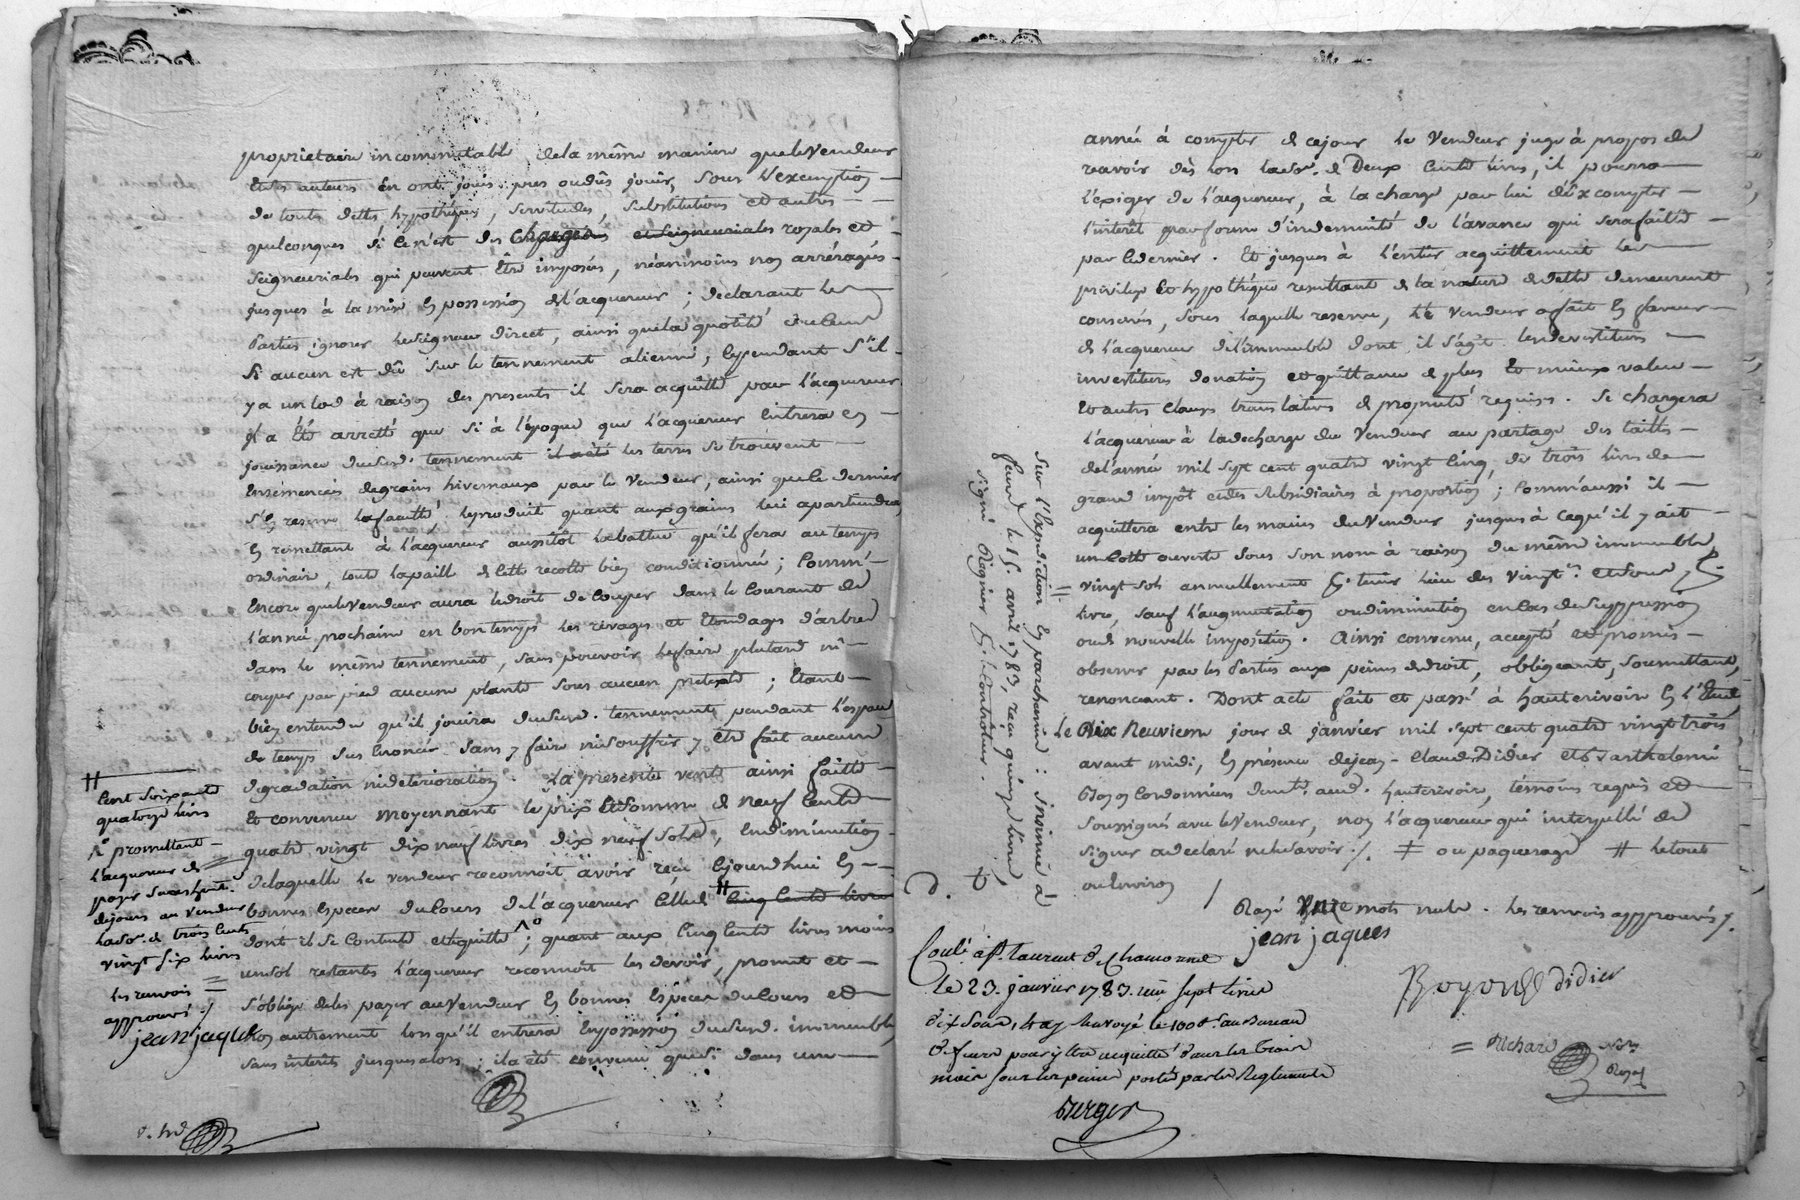 proprietaire incommutable de la même maniere que le Vendeur
et ses auteurs en ont joui pues ou dûs jouir, sous l'exemption
de toutes dettes hypothéques, servitudes, substitutions et autres
quelconques si ce n'est des charges et seigneuriales royales et
seigneuriales qui peuvent Être imposés, néanmoins nos arrérages
jusques à la mise En possession de l'acquereur ; declarant les
Parties ignorer le seigneur direct, ainsi que la quotité
Si aucun est dû sur le tennement aliené ; Cependant s'il
y a un lod à raison des presents il sera acquitté par l'acquereur
Il a Été arretté que si à l'époque que l'acquereur Entrera en
jouissance dud. tennement il a été les terres se trouvent
Ensémencés de grains hivernaux par le Vendeur, ainsi que le dernier
s'en reserve la faculté, le produit quant aux grains lui apartiendra
En remettant à l'acquereur aussitôt la battue qu'il fera au temps
ordinaire, toute la paille de cette recolte bien conditionnée ; Comm'
Encore que le Vendeur aura le droit de Couper dans le Courant de
l'année prochaine en bon temps les rivages et Etondages d'arbres
dans le même tennement, sans pouvoir le faire plutard ni
couper par pied aucune plante sous aucun pretexte ; Etant
bien entendu qu'il jouira dud. tennement pendant l'espace
de temps sus Enoncé sans y faire ni souffrir y être fait aucune
dégradation ni déterioration. La presente vente ainsi faitte
Et convenue moyennant le prix Et somme de neuf Cents
quatre vingt dix neuf livres dix neuf sols, En diminution
de laquelle le vendeur reconnoît avoir reçu Cejourdhui En
bonnes Especes du Cours de l'acquereur Celle de # Cinq Cents livres
dont il se Contente et quitte ; quant aux Cinq Cents livres moins
un sol restantes l'acquereur reconnoit les devoir, promet et
s'oblige de les payer au Vendeur En bonnes Especes du Cours et
non autrement lorsqu'il entrera En possession dud. immeuble
sans interêts jusques alors ; il a été convenu que si dans une
#
Cent soixante
quatorze livres
promettant
l'acquereur de
payer
dejours au Vendeur
lad. so. de trois Cents
vingt six livres
les renvois
approuvés ./
jean jaques
année à compter de cejour le Vendeur juge à propos de
recevoir dès lors lad. so. de Deux Cents livres, il pourra
l'exiger de l'acquereur, à la charge par lui d'Excompter
l'intérêt par forme d'indemnité de l'avance qui sera faitte
par le dernier. Et jusques à l'entier acquittement les
privilege Et hypothéque resultant de la nature de dette demeurent
conservés, sous laquelle reserve, le Vendeur a fait En faveur
de l'acquereur de l'immeuble dont il s'agit les devestitures
investitures donation et quittance de plus Et mieux value
Et autres clauses translatives de propriété requises. Se chargera
l'acquereur à la decharge du Vendeur au partage des tailles
de l'année mil sept cent quatre vingt Cinq, de trois livres de
grand impôt et des subsidiaires à proportion ; Comm'aussi il
acquittera entre les mains du Vendeur jusques à ce qu'il y ait
un Cotte ouverte sous son nom à raison du même immeuble
vingt sols annuellement pr. tenir lieu des vingt.es et sous p.
livre, sauf l'augmentation ou diminution en Cas de suppression
ou de nouvelle imposition. Ainsi convenu, accepté et promis
observer par les Parties aux peines de droit, obligeants, soumettant,
renonceant. Dont acte fait et passé à hauterivoire En l'Etude
Le Dix Neuvieme jour de janvier mil sept cent quatre vingt trois
avant midi, En présence de jean-Claude Didier et Barthelemi
Boyon Cordonniers dem.ts aud. hauterivoire, témoins requis et
soussignés avec le Vendeur, non l'acquereur qui interpellé de
signer a declaré ne le savoir ./. ‡ ou paquerage # le tout
ou Environ /
Rayé onze mots nuls. les renvois approuvés ./.
jean jaques
Boyon Didier
Richard No.re Royal
Sur l'Expedition En parchemin : insinué à
feurs le 15. avril 1783, reçu quinze livres,
signé Ognier pr. le Contrôleur.
Conlé à St. Laurent de Chamousset
le 23. janvier 1783. reçu sept livres
dix sous, & ay renvoyé le 100e. au Bureau
de feurs pour y être acquitté dans les trois
mois sous les peines portés par les Reglements
Berger